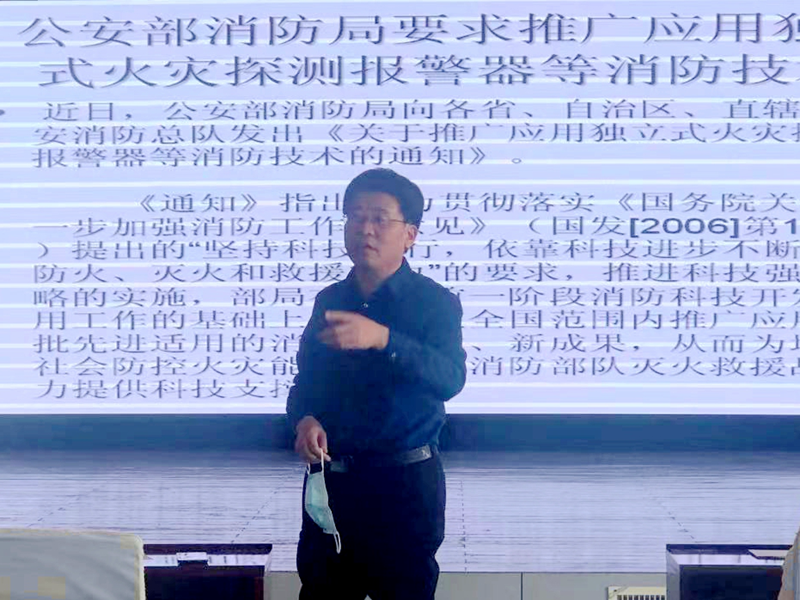 公安部消防局要求推广应用独
式火灾探测报警器等消防技
近日，公安部消防局向各省、自治区、直辖
安消防总队发出《关于推广应用独立式火灾探
报警器等消防技术的通知》。
《通知》指出 为贯彻落实《国务院关
一步加强消防工作 见》（国发[2006]第1
）提出的“坚持科技 行，依靠科技进步不断
防火、灭火和救援 ”的要求，推进科技强
略的实施，部局 第一阶段消防科技开
用工作的基础上 全国范围内推广应
批先进适用的消 、新成果，从而为
社会防控火灾能 消防部队灭火救援
力提供科技支撑